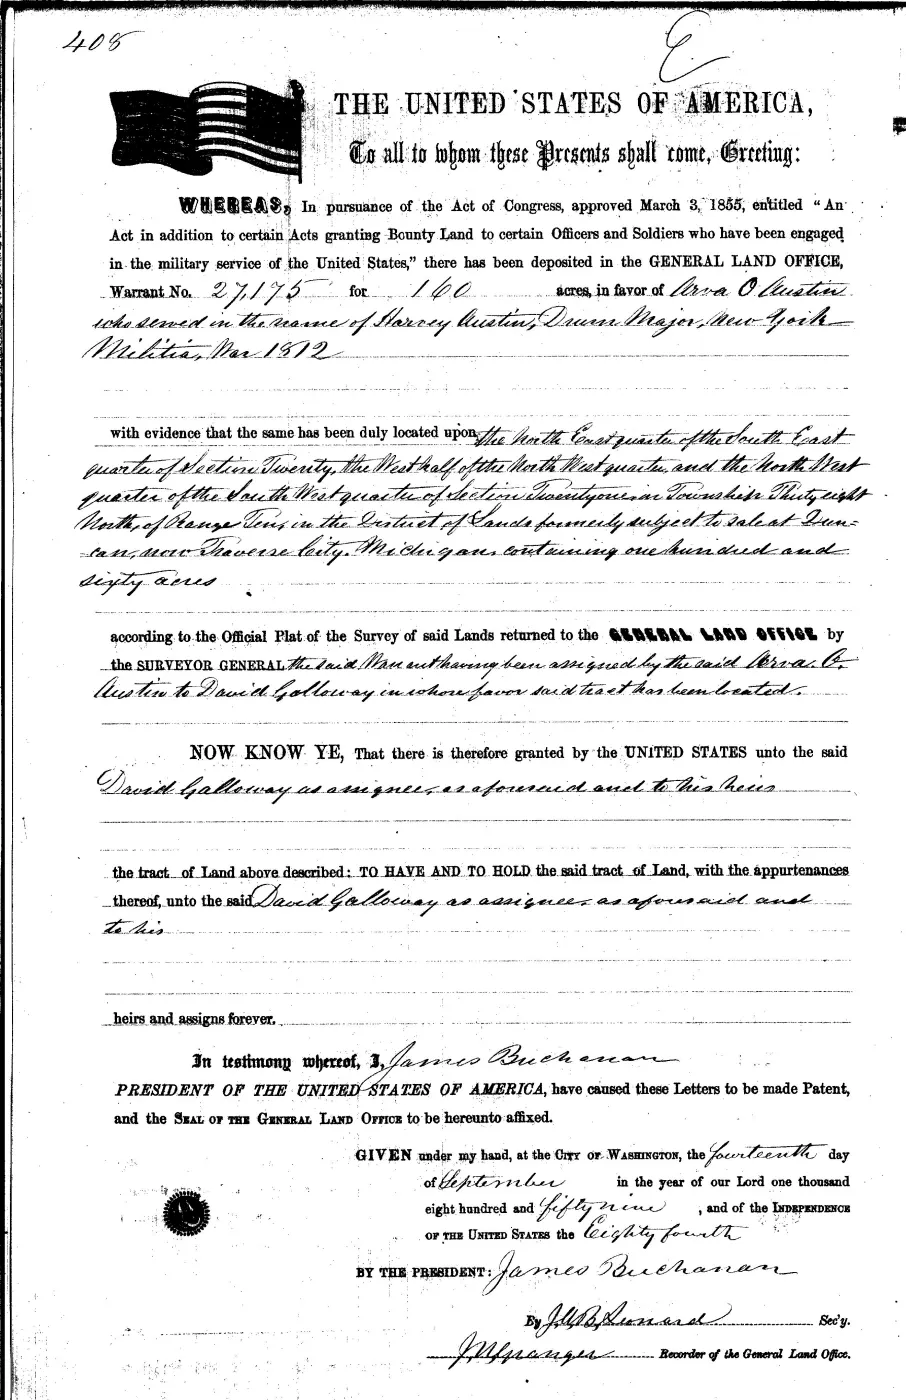 408
THE UNITED STATES OF AMERICA,
To all to whom these Presents shall come, Greeting:
WHEREAS, In pursuance of the Act of Congress, approved March 3, 1855, entitled "An
Act in addition to certain Acts granting Bounty Land to certain Officers and Soldiers who have been engaged
in the military service of the United States," there has been deposited in the GENERAL LAND OFFICE,
Warrant No. 27,175 for 160 acres, in favor of Arva O Austin
who served in the name of Harvey Austin, Drum Major, New York
Militia, War 1812
with evidence that the same has been duly located upon the North East quarter of the South East
quarter of Section Twenty, the West half of the North West quarter, and the North West
quarter of the South West quarter of Section Twenty one, in Township Thirty eight
North, of Range Ten, in the District of Lands formerly subject to sale at Dun=
=can, now Traverse City, Michigan, containing one hundred and
sixty acres
according to the Official Plat of the Survey of said Lands returned to the GENERAL LAND OFFICE by
the SURVEYOR GENERAL the said Warrant having been assigned by the said Arva O.
Austin to David Galloway in whose favor said tract has been located.
NOW KNOW YE, That there is therefore granted by the UNITED STATES unto the said
David Galloway as assignee, as aforesaid and to his heirs
the tract of Land above described: TO HAVE AND TO HOLD the said tract of Land, with the appurtenances
thereof, unto the said David Galloway as assignee, as aforesaid and
to his
heirs and assigns forever.
In testimony whereof, I, James Buchanan
PRESIDENT OF THE UNITED STATES OF AMERICA, have caused these Letters to be made Patent,
and the SEAL OF THE GENERAL LAND OFFICE to be hereunto affixed.
GIVEN under my hand, at the CITY OF WASHINGTON, the fourteenth day
of September in the year of our Lord one thousand
eight hundred and fifty nine, and of the INDEPENDENCE
OF THE UNITED STATES the Eighty fourth
BY THE PRESIDENT: James Buchanan
By J.A.B. Leonard Sec'y.
J N Granger Recorder of the General Land Office.